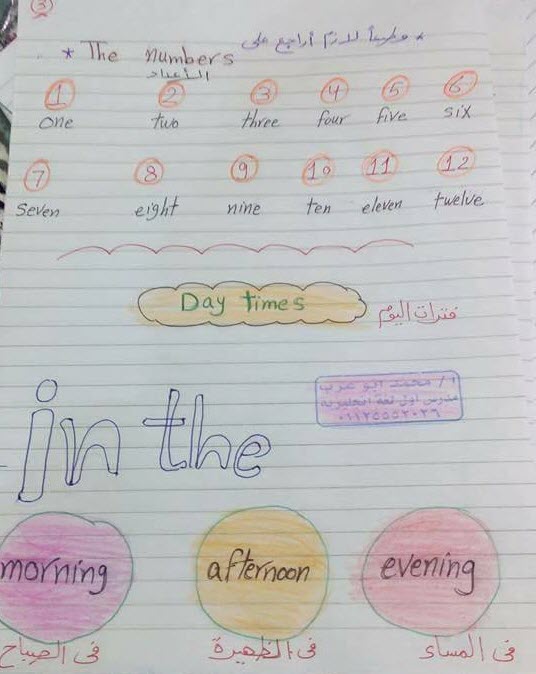 3
* وطبعاً لازم أراجع على
* The numbers
الأعداد
1 2 3 4 5 6
one two three four five six
7 8 9 10 11 12
seven eight nine ten eleven twelve
Day times فترات اليوم
أ / محمد ابو عرب
مدرس اول لغة انجليزية
٠١١٢٥٥٥٢٠٢٦
in the
morning afternoon evening
فى الصباح فى الظهيرة فى المساء